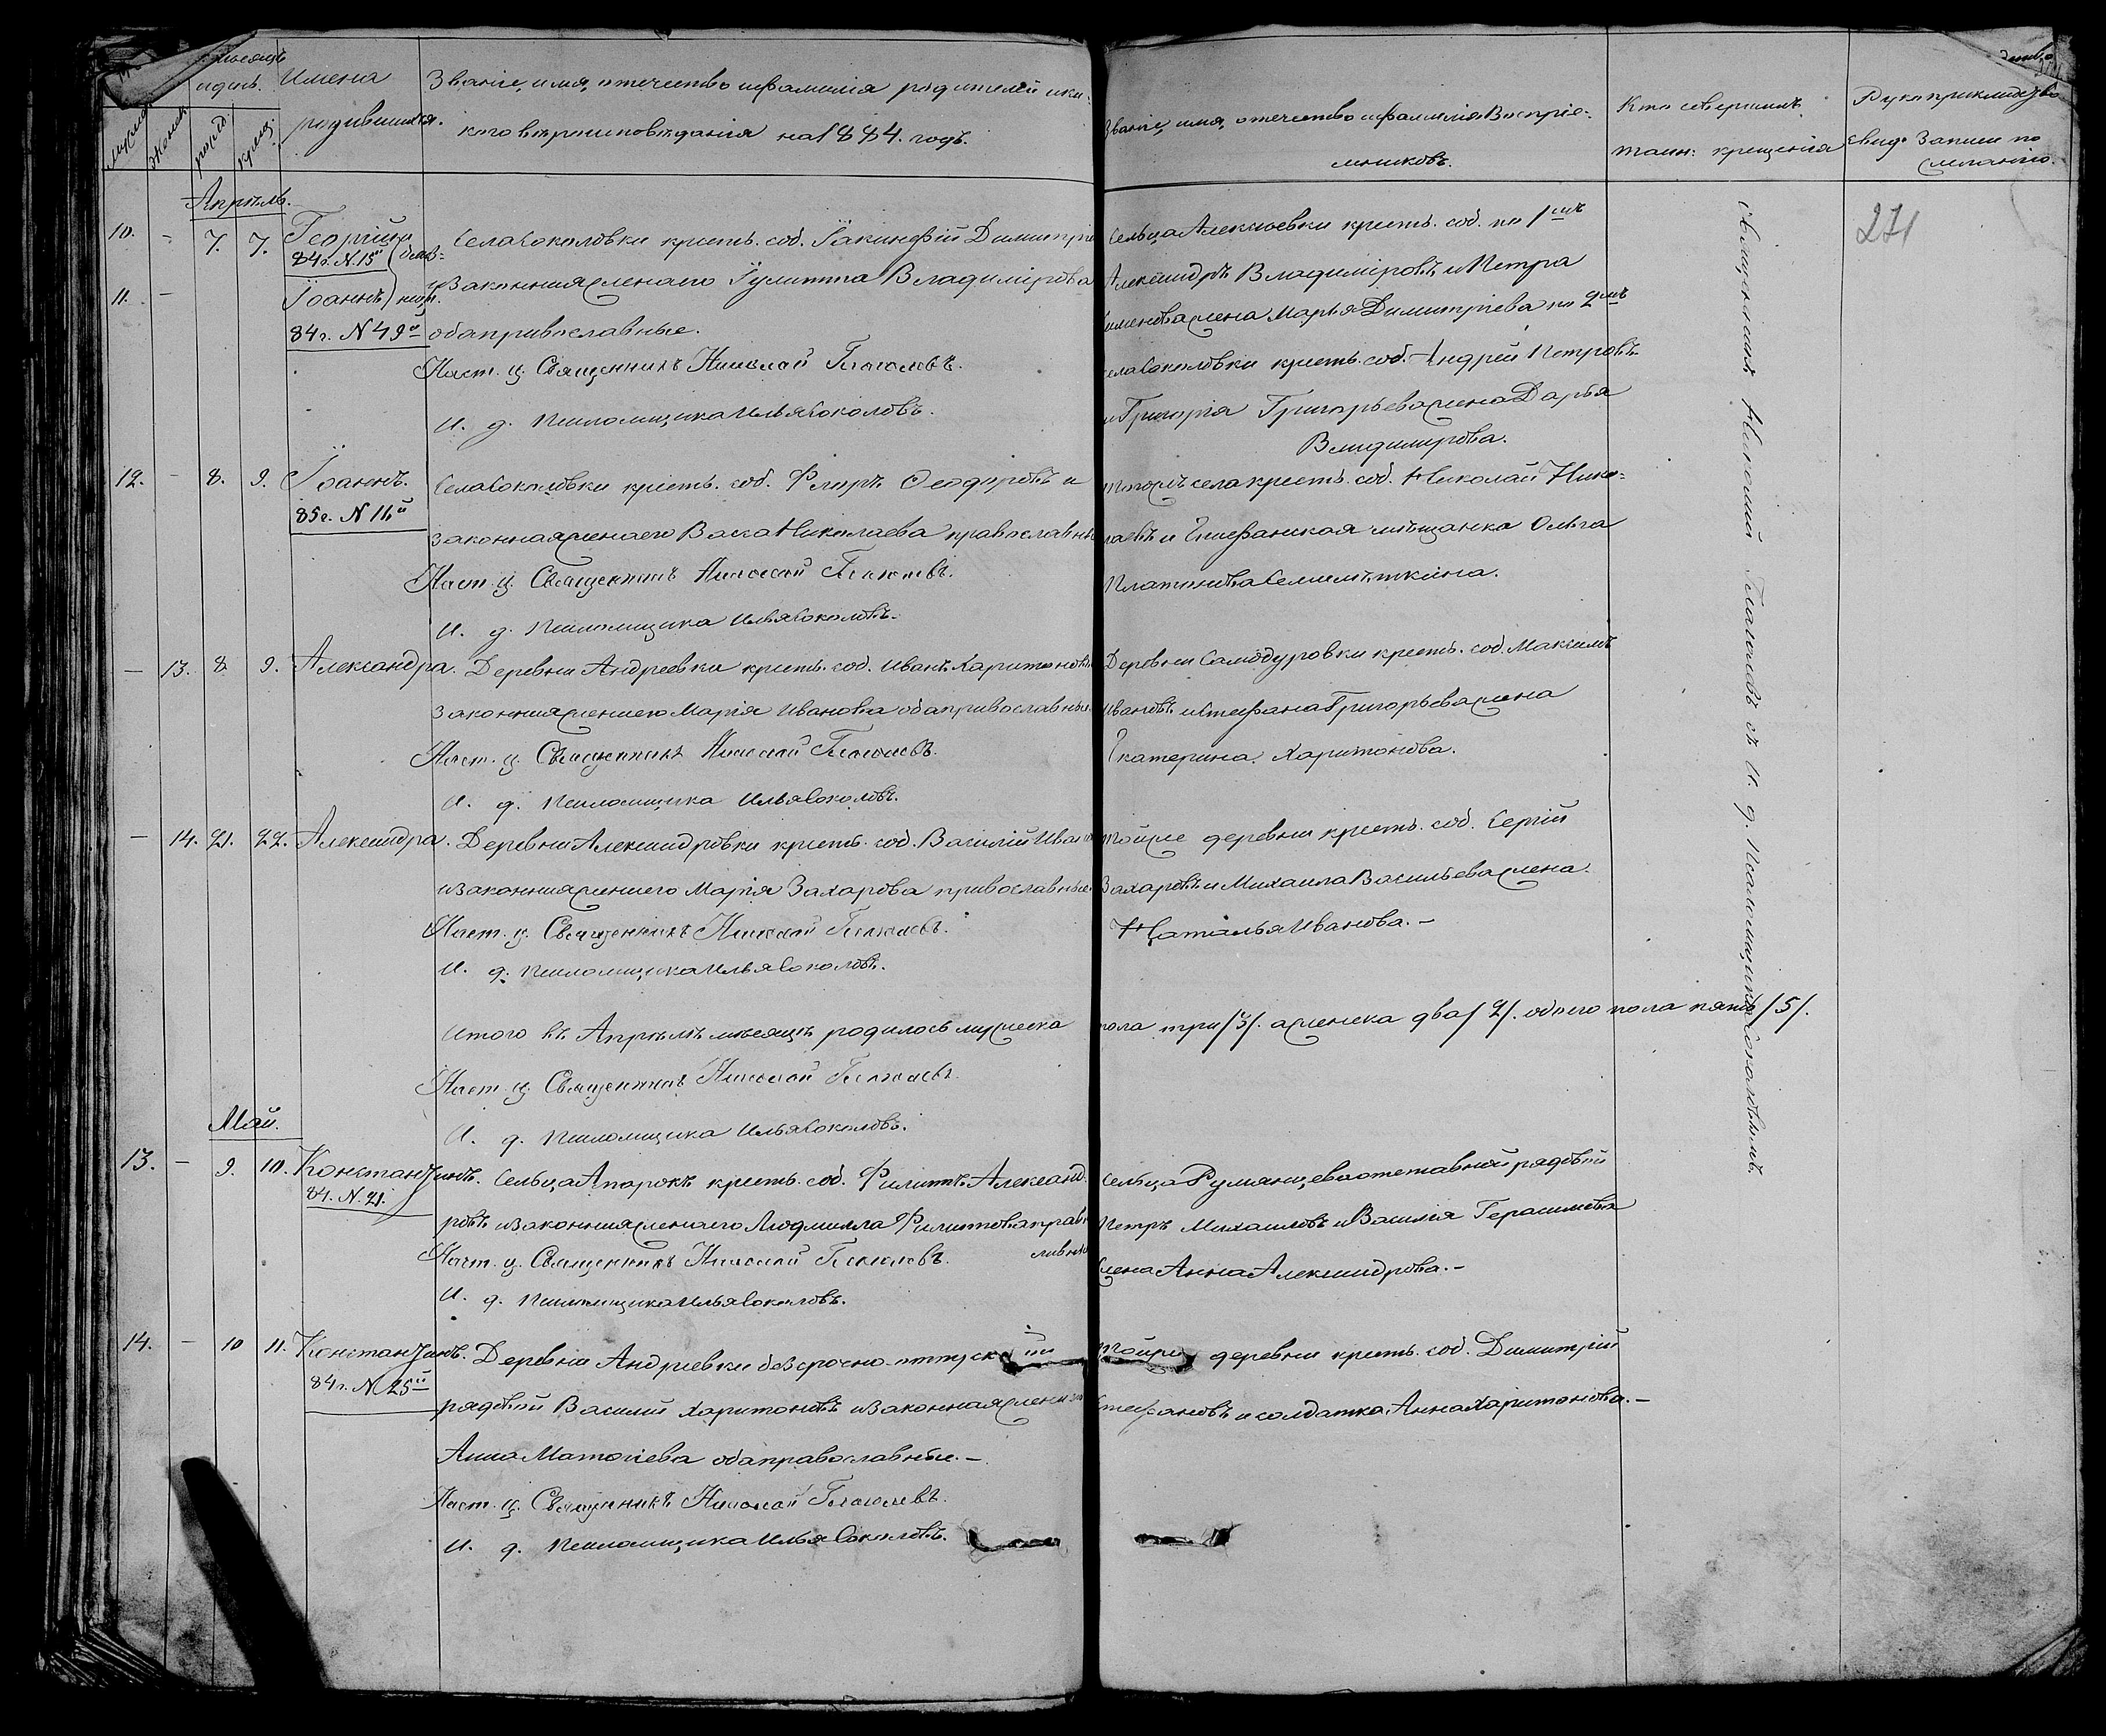 мѣсяцъ
и день.
Имена
родившихся.
Званіе, имя, отечество и фамилія родителей и ка-
кого вѣроисповѣданія на 1884. годъ.
рожд.
крещ.
Званіе, имя, отечество и фамилія Воспріе-
мниковъ.
Кто совершилъ
таин: крещенія
Рукоприкладство
свид. записи по
желанію.
271
Апрѣль.
10. - 7. 7. Георгій
84 г. N. 15й
близ-
11. - Іоаннъ
нец.
84 г. N 49й
Села Соколовки кресть. соб. Іакинфій Димитріе
и законная жена его Іулитта Владимірова
оба православные.
Наст. ц. Священникъ Николай Глаголевъ.
И. д. Псаломщика Илья Соколовъ.
Сельца Алексѣевки кресть. соб. по 1мъ
Александръ Владиміровъ и Петра
жена Марья Димитріева по 2мъ
села Соколовки кресть. соб. Андрей Петровъ
и Григорія Григорьева жена Дарья
Владимірова.
12. - 8. 9. Іоаннъ.
85 г. N 11й
Села Соколовки кресть. соб. Флоръ Ѳеодоровъ и
законная жена его Васса Николаева православны
Наст. ц. Священникъ Николай Глаголевъ.
И. д. Псаломщика Илья Соколовъ.
тогожъ села кресть. соб. Николай Нико-
лаевъ и Епифанская мѣщанка Ольга
Платонова
- 13. 8. 9. Александра.
Деревни Андреевки кресть. соб. Иванъ Харитоновъ
законная жена его Марія Иванова оба православные
Наст. ц. Священникъ Николай Глаголевъ.
И. д. Псаломщика Илья Соколовъ.
Деревни Самодуровки кресть. соб. Максимъ
Ивановъ и Стефана Григорьева жена
Екатерина Харитонова.
- 14. 21. 22. Александра.
Деревни Александровки кресть. соб. Василій Иван
и законная жена его Марія Захарова православные
Наст. ц. Священникъ Николай Глаголевъ.
И. д. Псаломщика Илья Соколовъ.
тойже деревни кресть. соб. Сергій
Захаровъ и Михаила Васильева жена
Наталья Иванова. -
Итого въ Апрѣлѣ мѣсяцѣ родилось мужеска
пола три /3/. женска два /2/. обоего пола пять /5/.
Наст. ц. Священникъ Николай Глаголевъ.
И. д. Псаломщика Илья Соколовъ.
Май.
13. - 9. 10. Константинъ.
84. N. 21.
Сельца Апарокъ кресть. соб. Филиппъ Александ
ровъ и законная жена его Людмилла Филиппова право
славные
Наст. ц. Священникъ Николай Глаголевъ.
И. д. Псаломщика Илья Соколовъ.
Сельца Румянцева отставной рядовой
Петръ Михаиловъ и Василія Герасимова
жена Анна Александрова. -
14. - 10 11. Константинъ.
84 г. N 25й
Деревни Андреевки безсрочно-отпускной
рядовой Василій Харитоновъ и законная жена его
Анна Матѳіева оба православные. -
Наст. ц. Священникъ Николай Глаголевъ.
И. д. Псаломщика Илья Соколовъ.
тойже деревни кресть. соб. Димитрій
Стефановъ и солдатка Анна Харитонова. -
Священникъ Николай Глаголевъ съ И. д. Псаломщика Соколовымъ.